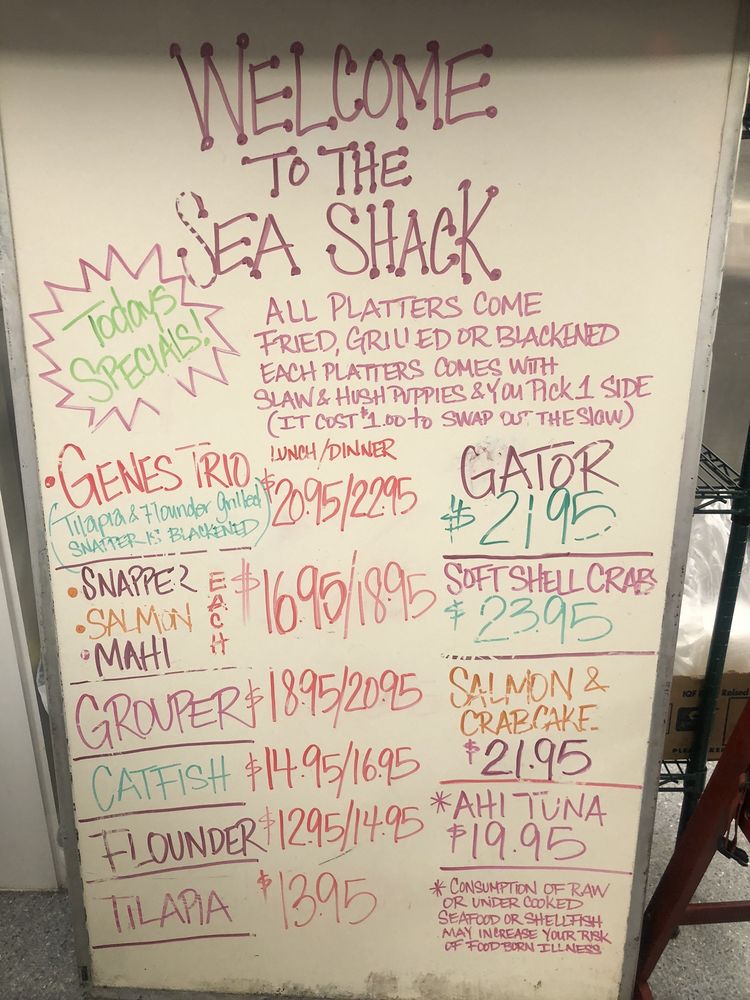 WELCOME
TO THE
SEA SHACK
Todays
SPECIALS!
ALL PLATTERS COME
FRIED, GRILLED OR BLACKENED
EACH PLATTERS COMES WITH
SLAW & HUSH PUPPIES & YOU PICK 1 SIDE
(IT COST $1.00 to SWAP OUT THE SLOW)
LUNCH/DINNER
•GENES TRIO $20.95/22.95
(Tilapia & Flounder grilled
SNAPPER IS BLACKENED)
•SNAPPER
•SALMON
•MAHI
EACH
$16.95/18.95
GROUPER $18.95/20.95
CATFISH $14.95/16.95
FLOUNDER $12.95/14.95
TILAPIA $13.95
GATOR
$21.95
SOFT SHELL CRABS
$23.95
SALMON &
CRABCAKE
$21.95
*AHI TUNA
$19.95
* CONSUMPTION OF RAW
OR UNDER COOKED
SEAFOOD OR SHELLFISH
MAY INCREASE YOUR RISK
OF FOOD BORN ILLNESS
IQF
Raised